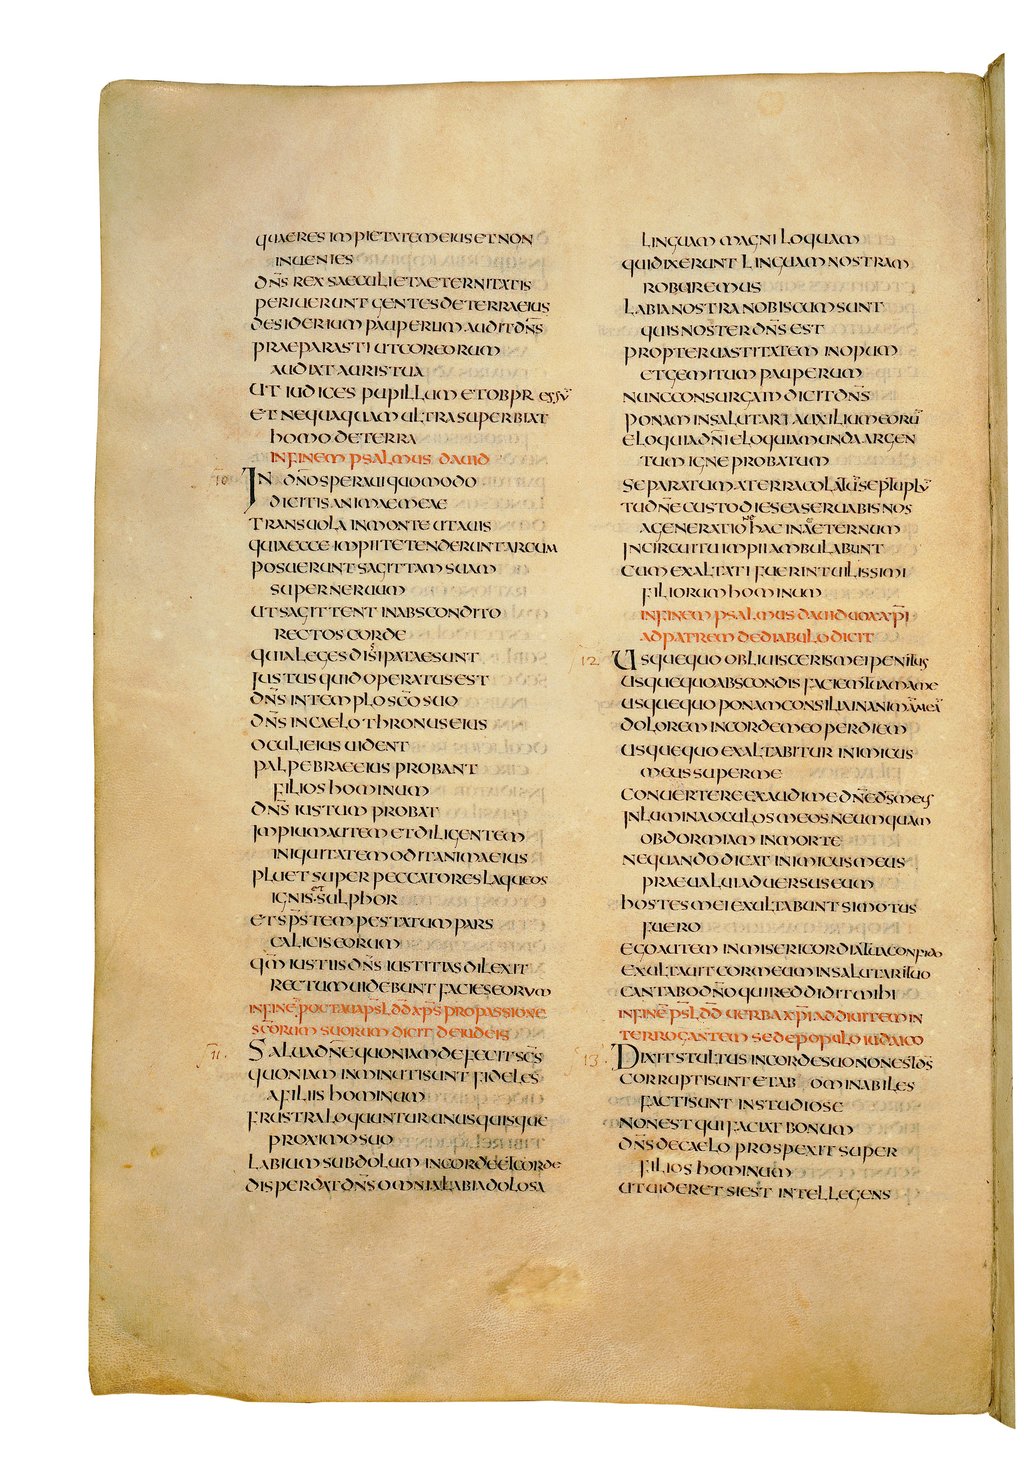 quaeres impietatem eius et non
inuenies
dn̄s rex saeculi et aeternitatis
perierunt gentes de terra eius
desiderium pauperum audit dn̄s
praeparasti ut cor eorum
audiat auris tua
ut iudices pupillum et ob
et nequaquam ultra superbiat
homo de terra
in finem psalmus dauid
10 In dn̄o speraui quomodo
dicitis animae meae
transuola in monte ut auis
quia ecce impii tetenderunt arcum
posuerunt sagittam suam
super neruum
ut sagittent in abscondito
rectos corde
quia leges dissipatae sunt
iustus quid operatus est
dn̄s in templo sc̄o suo
dn̄s in caelo thronus eius
oculi eius uident
palpebrae eius probant
filios hominum
dn̄s iustum probat
impium autem et diligentem
iniquitatem odit anima eius
pluet super peccatores laqueos
ignis et sulphor
et sp̄s tempestatum pars
calicis eorum
qm̄ iustus dn̄s iustitias dilexit
rectum uidebunt facies eorum
in fine p octaua psl dd xp̄s pro passione
sc̄orum suorum dicit de iudeis
11. Salua dn̄e quoniam defecit sc̄s
quoniam inminuti sunt fideles
a filiis hominum
frustra loquuntur unusquisque
proximo suo
labium subdolum in corde et corde
disperdat dn̄s omnia labia dolosa
linguam magniloquam
qui dixerunt linguam nostram
roboremus
labia nostra nobiscum sunt
quis noster dn̄s est
propter uastitatem inopum
et gemitum pauperum
nunc consurgam dicit dn̄s
ponam in salutari auxilium eorū
eloquia dn̄i eloquia munda argen
tum igne probatum
separatum a terra colatū septuplū
tu dn̄e custodies ea seruabis nos
a generatione hac in aeternum
in circuitu impii ambulabunt
cum exaltati fuerint uilissimi
filiorum hominum
in finem psalmus dauid uox xp̄i
ad patrem de diabulo dicit
12 Usquequo obliuisceris mei penitus
usquequo abscondis faciem tuam a me
usquequo ponam consilia in anima mea
dolorem in corde meo per diem
usquequo exaltabitur inimicus
meus super me
conuertere exaudi me dn̄e ds̄ meus
inlumina oculos meos ne umquam
obdormiam in morte
nequando dicat inimicus meus
praeualui aduersus eum
hostes mei exultabunt si motus
fuero
ego autem in misericordia tua confido
exultauit cor meum in salutari tuo
cantabo dn̄o qui reddidit mihi
in finē psl dd uerba xp̄i ad diuitem in
terrogantem se de populo iudaico
13. Dixit stultus in corde suo non est ds̄
corrupti sunt et ab ominabiles
facti sunt in studiose
non est qui faciat bonum
dn̄s de caelo prospexit super
filios hominum
ut uideret si est intellegens